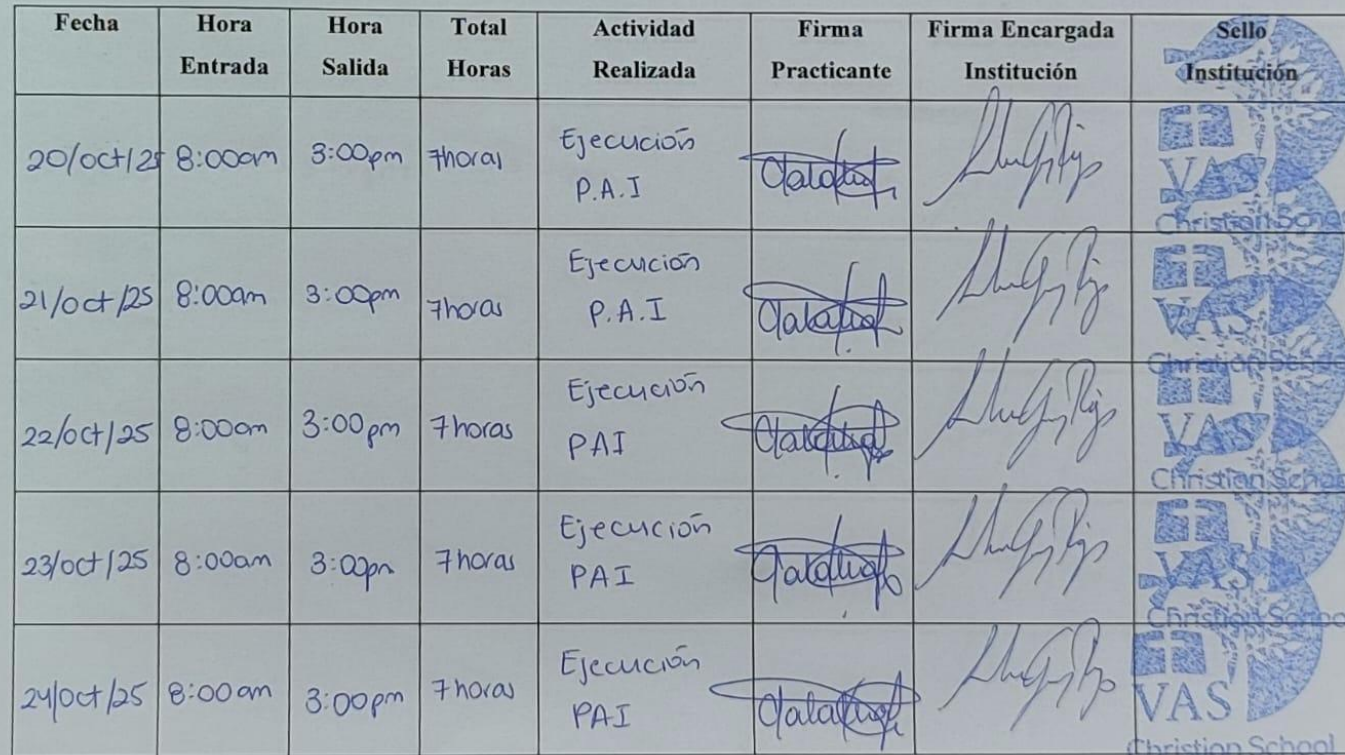 Fecha Hora Entrada Hora Salida Total Horas Actividad Realizada Firma Practicante Firma Encargada Institución Sello Institución
20/oct/25 8:00am 3:00pm 7horas Ejecución P.A.I VAS Christian School
21/oct/25 8:00am 3:00pm 7horas Ejecución P.A.I VAS Christian School
22/oct/25 8:00am 3:00pm 7horas Ejecución PAI VAS Christian School
23/oct/25 8:00am 3:00pm 7horas Ejecución PAI VAS Christian School
24/oct/25 8:00am 3:00pm 7horas Ejecución PAI VAS Christian School